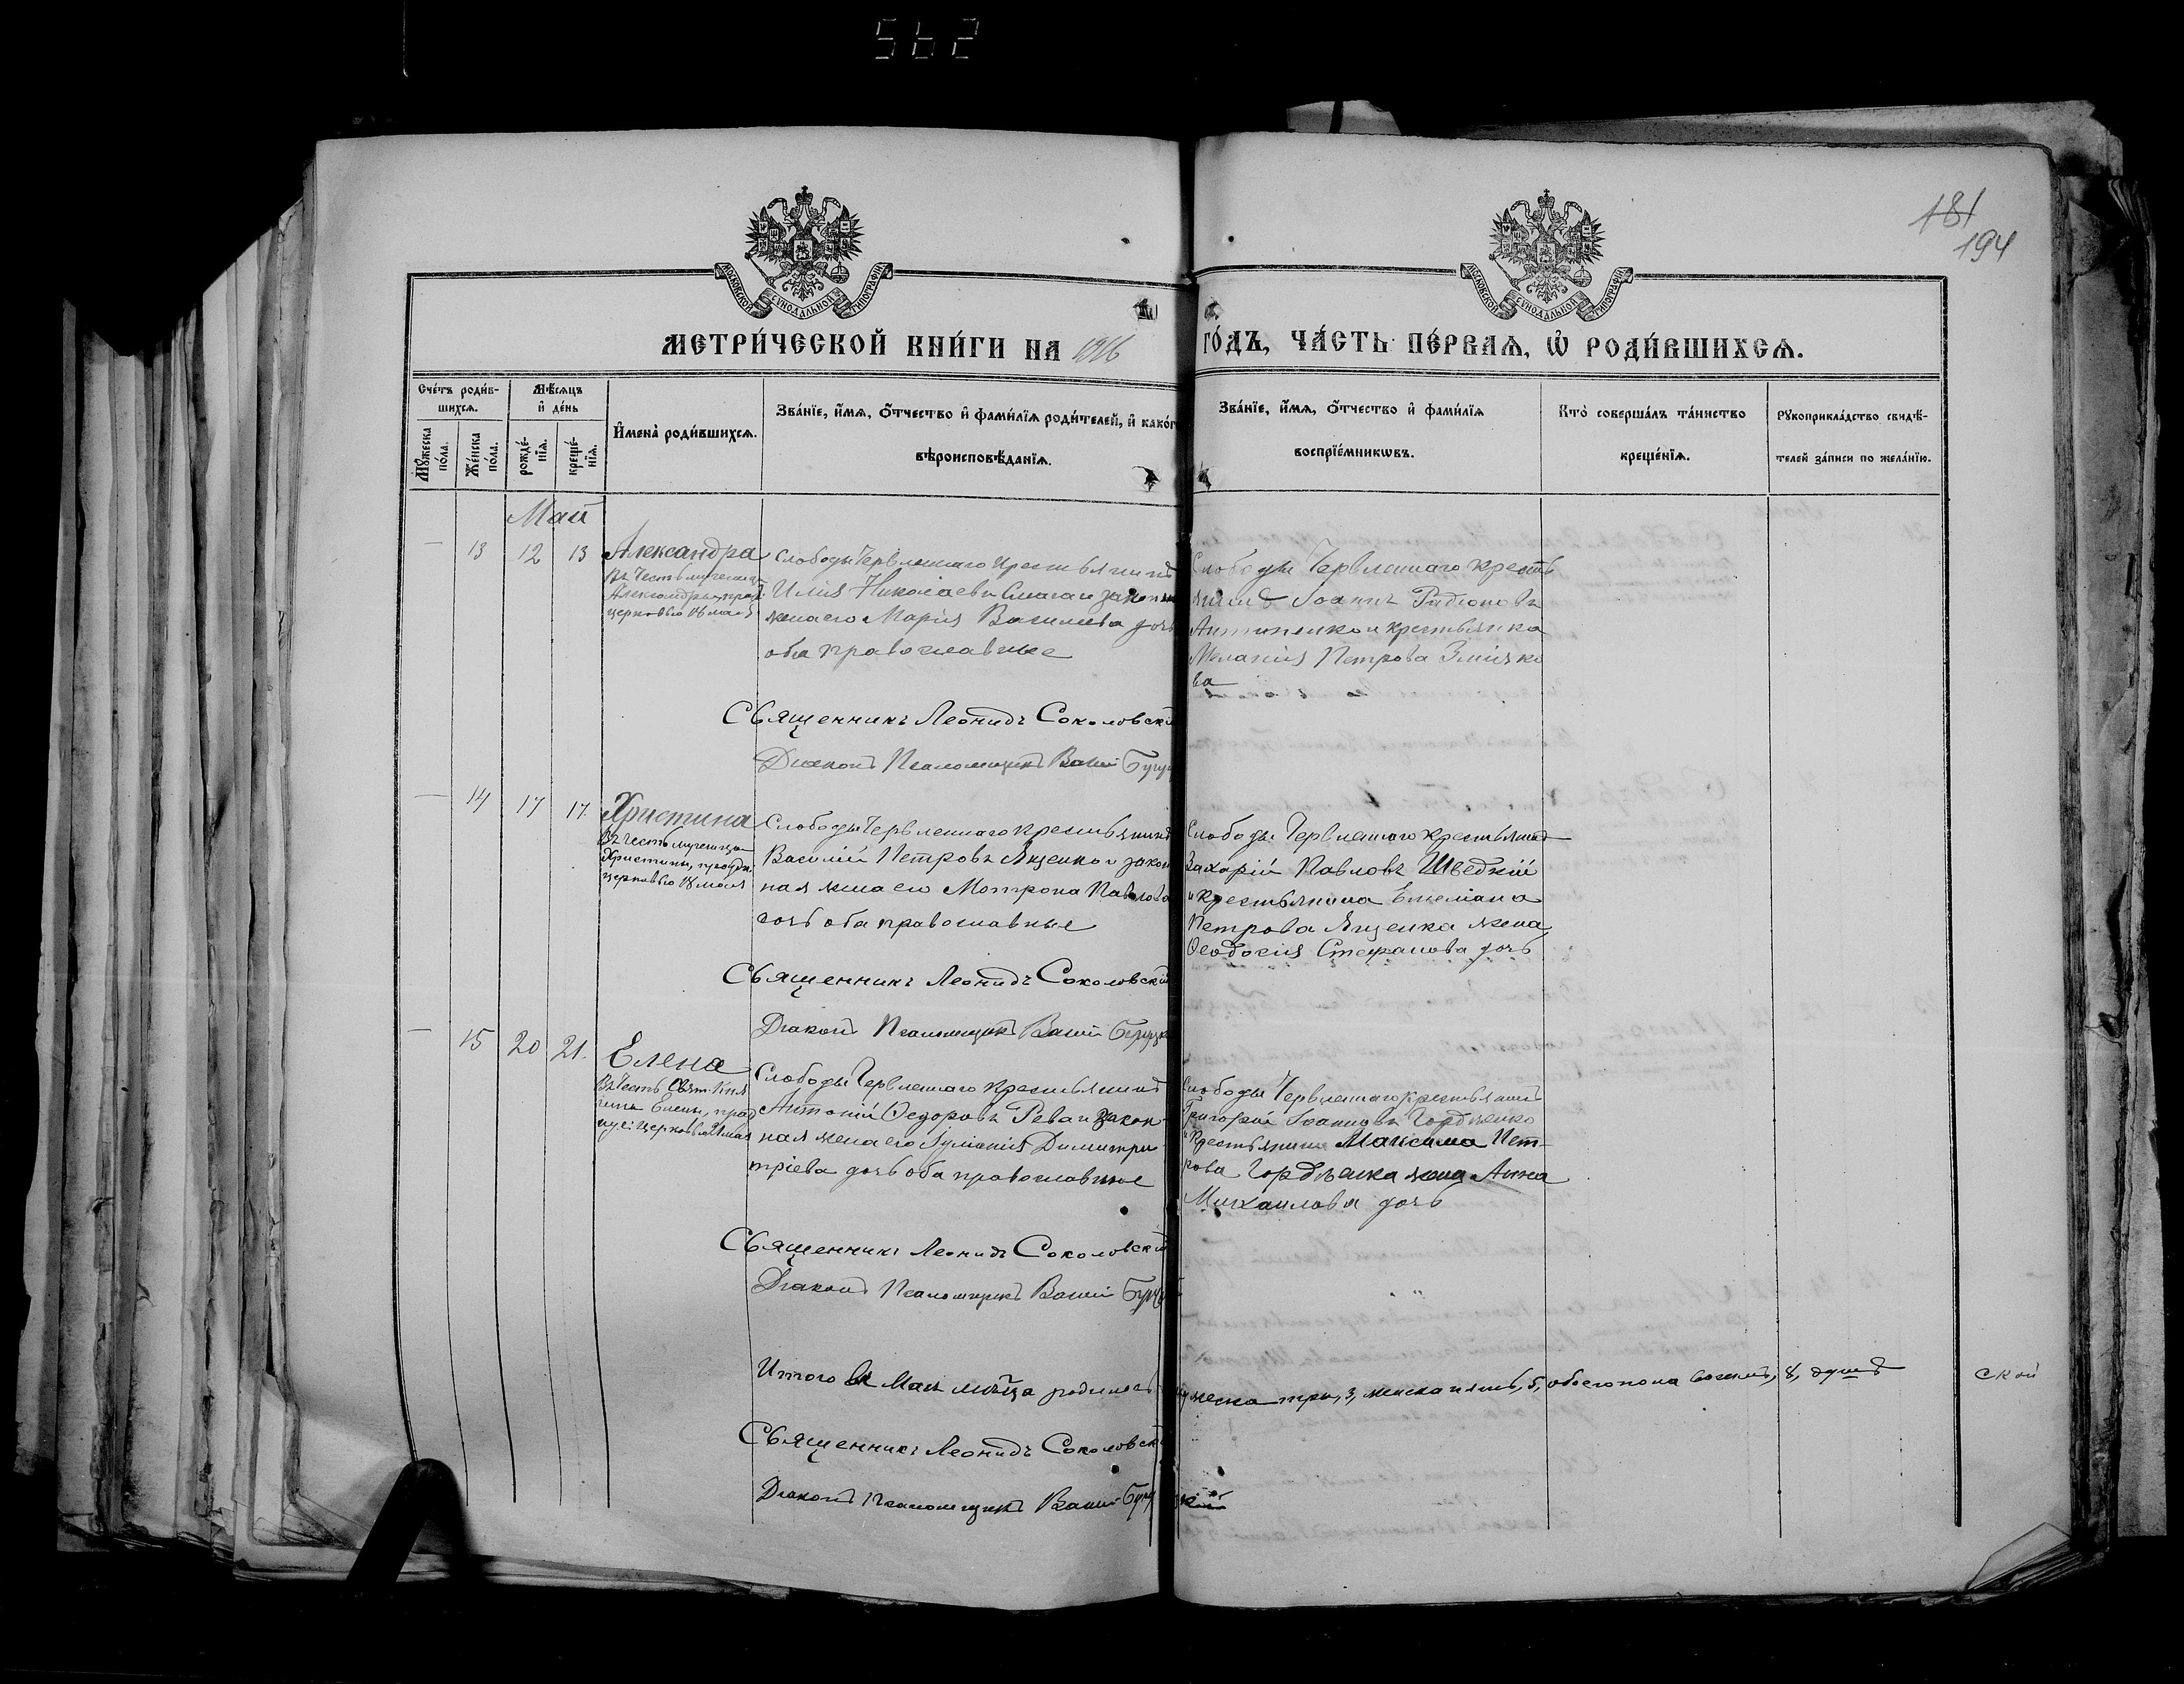 562
181
194
МОСКОВСКОЙ СѴНОДАЛЬНОЙ ТИПОГРАФІИ
МОСКОВСКОЙ СѴНОДАЛЬНОЙ ТИПОГРАФІИ
МЕТРИ́ЧЕСКОЙ КНИ́ГИ НА 1916 ГО́ДЪ, ЧА́СТЬ ПЕ́РВАЯ, Ѡ҆ РОДИ́ВШИХСЯ.
Сче́тъ роди́в-
шихся.
Мѣ́сяцъ
и҆ де́нь
Му́жеска
по́ла.
Же́нска
по́ла.
рожде́-
нїя.
креще́-
нїя.
И҆мена̀ роди́вшихся.
Зва́нїе, и҆́мя, ѻ҆́тчество и҆ фами́лїя роди́телей, и҆ како́г
вѣроисповѣ́данїя.
Зва́нїе, и҆́мя, ѻ҆́тчество и҆ фами́лїя
воспрїе́мниковъ.
Кто̀ соверша́лъ та́инство
креще́нїя.
Рукоприкла́дство свидѣ́-
телей за́писи по жела́нїю.
Май
— 13 12 13 Александра
Въ честь мученицы
Александры, праз.
церковью 18 мая
Слободы Червленнаго крестьянинъ
Илія Николаевъ и законн
жена его Марія Васильева дочь
оба православные
Слободы Червленнаго кресть
янинъ Іоаннъ
и крестьянка
Меланія Петрова Змiяко
ва
Священникъ Леонидъ Соколовскі
Діаконъ Псаломщикъ Васий
— 14 17 17. Христина
Въ честь мученицы
Христины, праздн.
церковью 18 мая
Слободы Червленнаго крестьянинъ
Василій Петровъ Яценко и закон
ная жена его Мотрона Павлова
дочь оба православные
Слободы Червленнаго крестьянинъ
Захарій Павловъ Шведкій
и крестьянина Емеліана
Петрова Яценка жена
Ѳеодосія Стефанова дочь
Священникъ Леонидъ Соколовскій
Діаконъ Псаломщикъ Васий
— 15 20 21. Елена
Въ честь Свят. Кня
гини Елены, праз
нуе: церковью 21 мая
Слободы Червленнаго крестьянинъ
Антоній Ѳедоровъ Рева и закон-
ная жена его Іуліанія Димитри
тріева дочь оба православные
Слободы Червленнаго крестьянинъ
Григорій Іоанновъ Гордѣенко
и крестьянина Максима Пет-
рова Гордѣенка жена Анна
Михаилова дочь
Священникъ Леонидъ Соколовскій
Діаконъ Псаломщикъ Васий
Итого въ Маѣ мѣсяца родилось мужеска три, 3, женска пять, 5, обоего пола восемь, 8, душъ
ской
Священникъ Леонидъ Соколовск
Діаконъ Псаломщикъ Васий